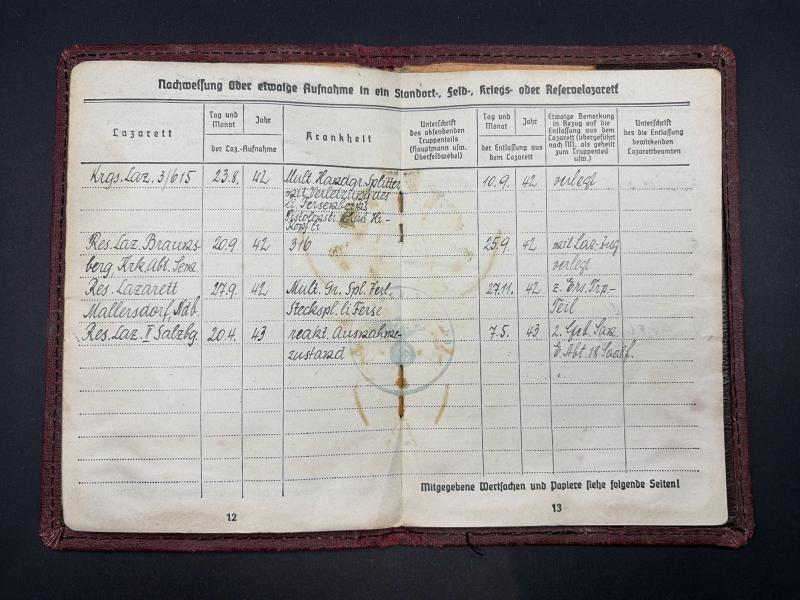 Nachweisung über etwaige Aufnahme in ein Standort-, Feld-, Kriegs- oder Reservelazarett
Lazarett
Tag und Monat
Jahr
der Laz.-Aufnahme
Krankheit
Unterschrift des absendenden Truppenteils (Hauptmann usw. Oberfeldwebel)
Tag und Monat
Jahr
der Entlassung aus dem Lazarett
Etwaige Bemerkung in Bezug auf die Entlassung aus dem Lazarett (übergeführt nach NN, als geheilt zum Truppenteil usw.)
Unterschrift des die Entlassung bewirkenden Lazarettbeamten
Krgs. Laz. 3/615 23.8. 42 Mult. Handgr. Splitter 10.9. 42 verlegt
mit Verletzung des
li. Fersenbeins
Kopf li
Res. Laz. Brauns- 20.9 42 316 25.9. 42 mit Laz. Zug
berg, Krk. Abt. verlegt
Res. Lazarett 27.9. 42 Mult. Gr. Spl. Verl. 27.11. 42 z. Ers. Trp.-
Mallersdorf, Ndb. Steckspl. li Ferse Teil
Res. Laz. II Salzbg 20.4. 43 reakt. Ausnahme- 7.5. 43 2. Geb. San.
zustand E. Abt. 18 Saalf.
Mitgegebene Wertsachen und Papiere siehe folgende Seiten!
12
13